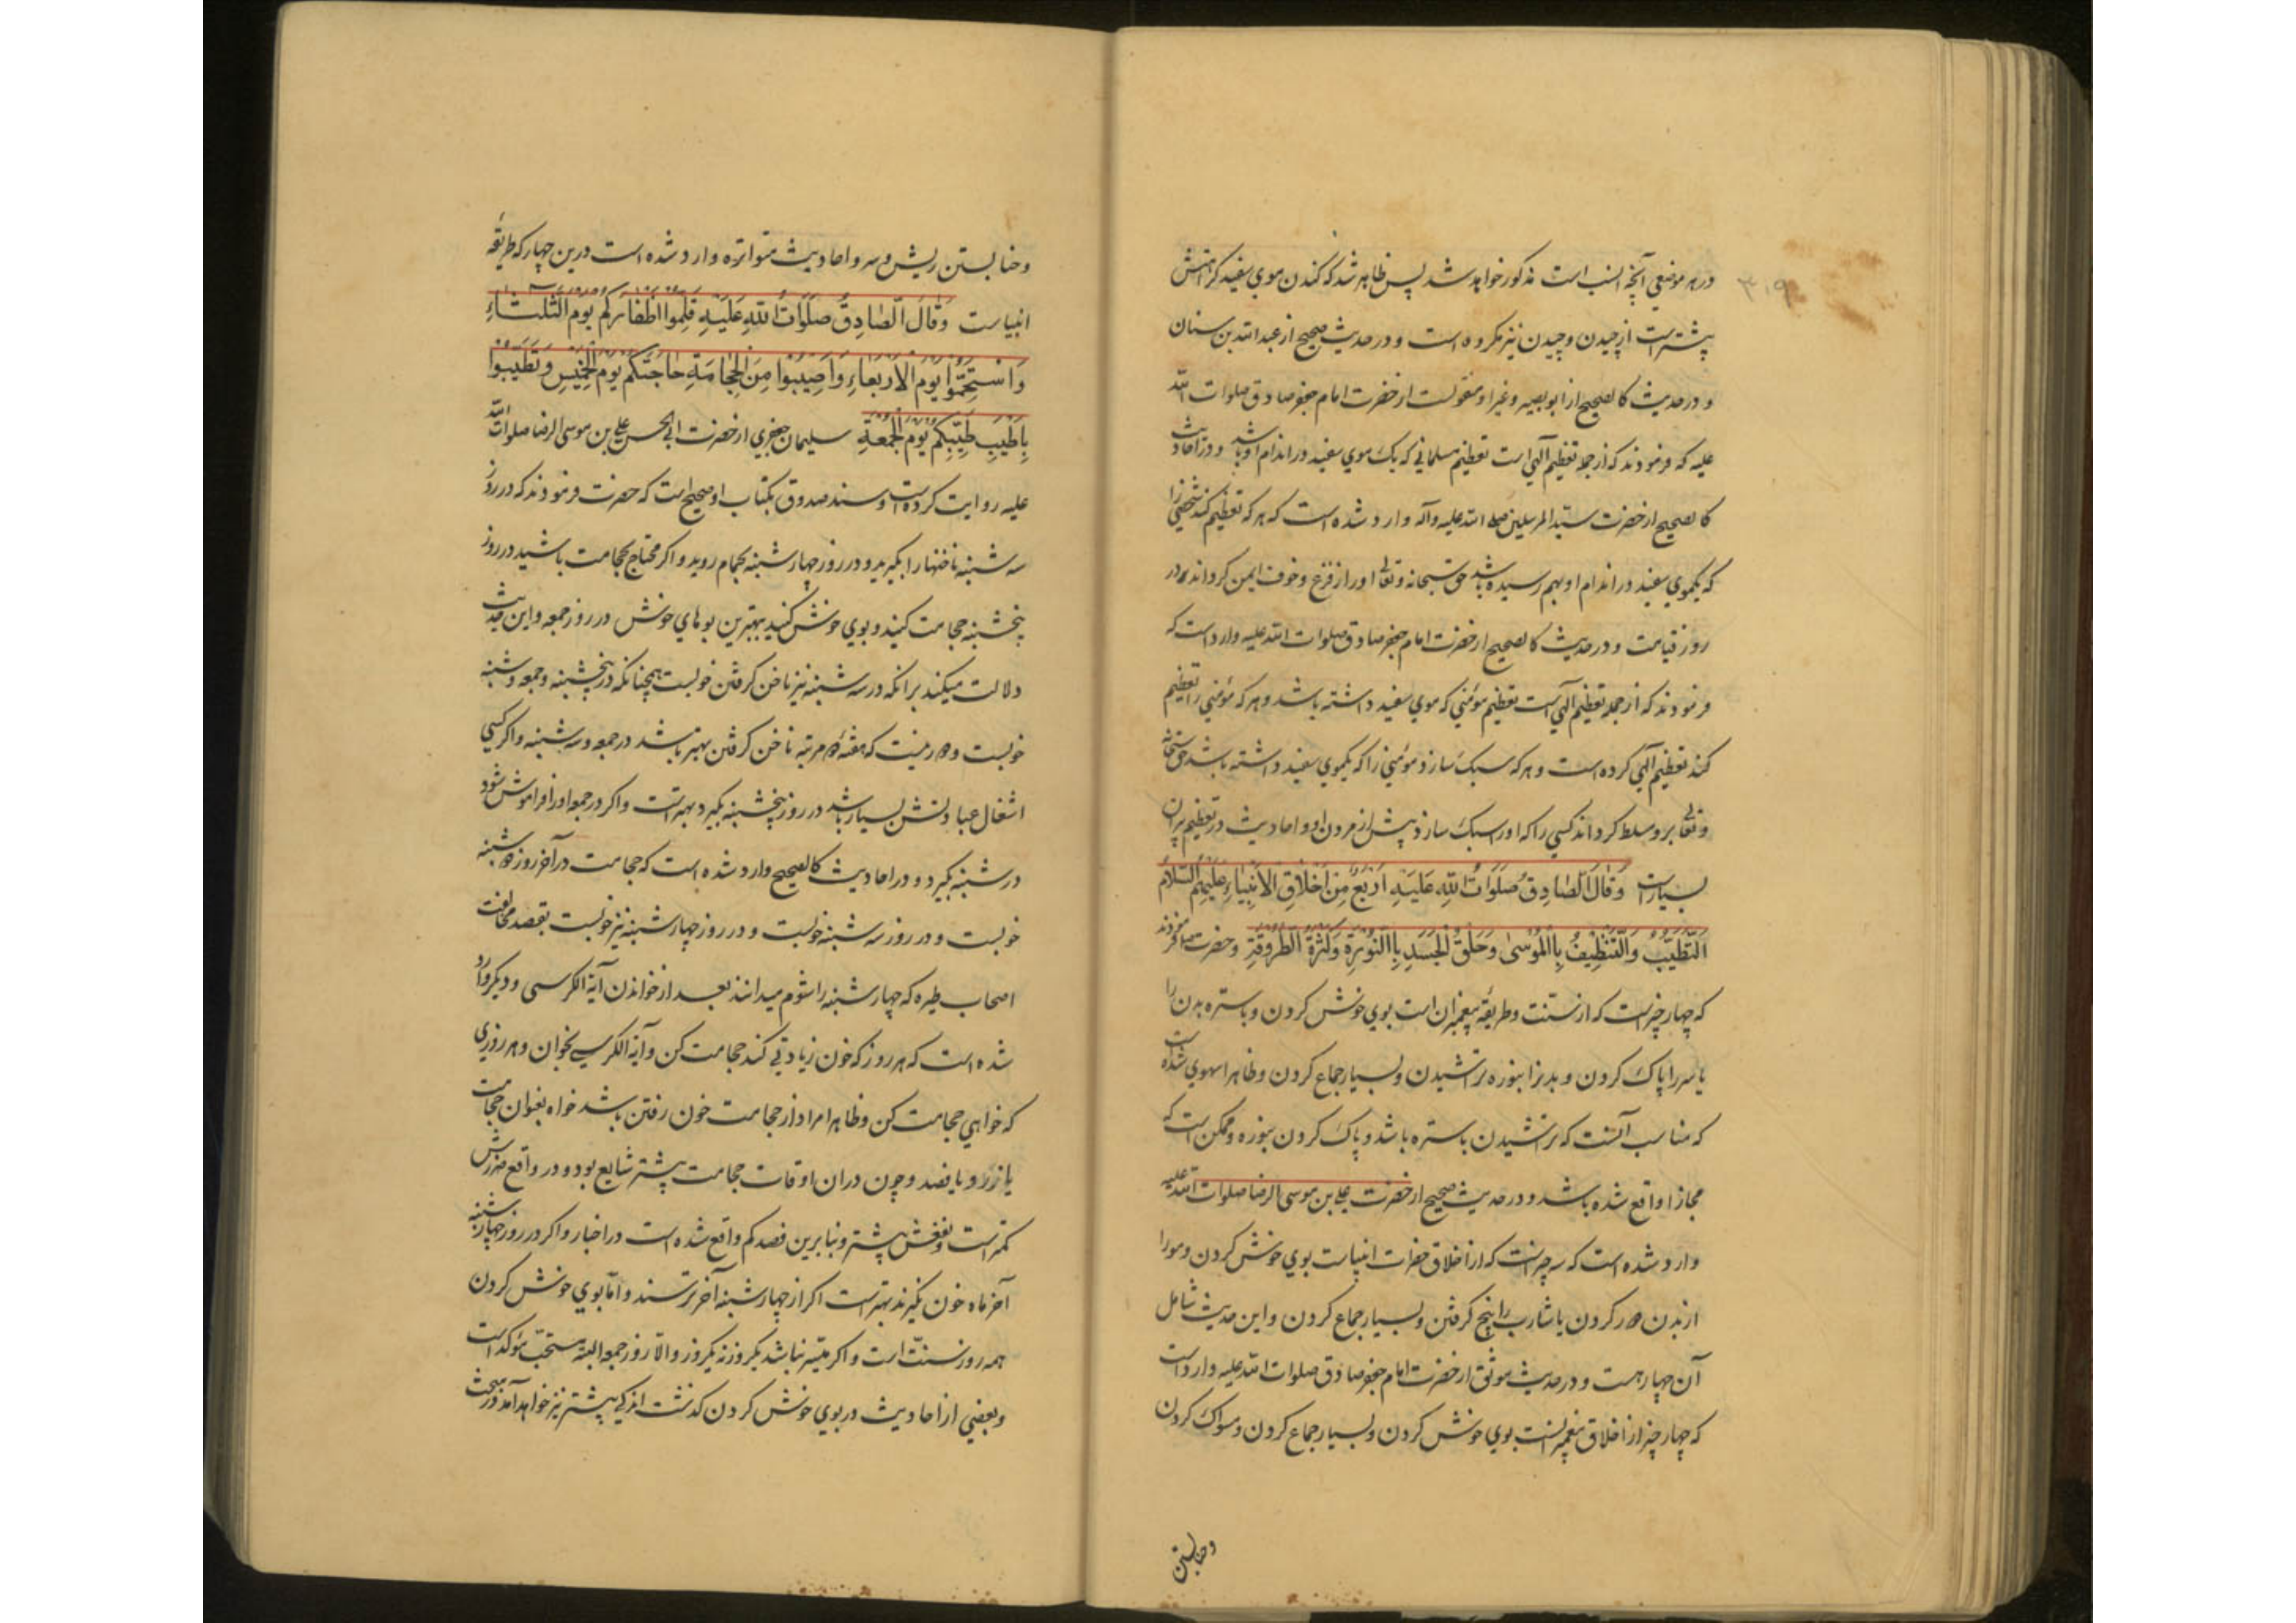 در هر موضعی آنچه انسب است مذکور خواهد شد پس ظاهر شد که کندن موی سفید کراهتش
بیشتر است از چیدن و چیدن نیز مکروه است و در حدیث صحیح از عبد الله بن سنان
و در حدیث کالصحیح از ابو بصیر و غیر او منقولست از حضرت امام جعفر صادق صلوات الله
علیه که فرمودند که از جمله تعظیم آلهی است تعظیم مسلمانی که یک موی سفید در اندام او باشد و در احادیث
کالصحیح از حضرت سید المرسلین صلی الله علیه و آله وارد شده است که هر که تعظیم کند شخصی را
که یکموی سفید در اندام او بهم رسیده باشد حق سبحانه و تعالی او را از فزع و خوف ایمن کرداند در
روز قیامت و در حدیث کالصحیح از حضرت امام جعفر صادق صلوات الله علیه وارد است که
فرمودند که از جمله تعظیم آلهی است تعظیم مؤمنی که موی سفید داشته باشد و هر که مؤمنی را تعظیم
کند تعظیم آلهی کرده است و هر که سبک سازد مؤمنی را که یکموی سفید داشته باشد حق سبحانه
و تعالی برو مسلط کرداند کسی را که او را سبک سازد پیش از مردن او و احادیث در تعظیم پیران
بسیار است وَقَالَ الصَّادِقُ صَلَوَاتُ اللهِ عَلَيْهِ اَرْبَعٌ مِنْ اَخْلَاقِ الْاَنْبِيَاءِ عَلَيْهِمُ السَّلَامُ
اَلتَّطَيُّبُ وَالتَّنْظِيفُ بِالْمُوسٰى وَحَلْقُ الْجَسَدِ بِالنُّورَةِ وَكَثْرَةُ الطَّرُوقَةِ و حضرت فرمودند
که چهار چیز است که از سنت و طریقه پیغمبران است بوی خوش کردن و باستره بدن را
یا سر را پاک کردن و بدنرا بنوره تراشیدن و بسیار جماع کردن و ظاهرا سهوی شده است
که مناسب آنست که تراشیدن باستره باشد و پاک کردن بنوره و ممکن است که
مجازا واقع شده باشد و در حدیث صحیح از حضرت علی بن موسی الرضا صلوات الله علیه
وارد شده است که سه چیز است که از اخلاق حضرات انبیاست بوی خوش کردن و مو را
از بدن دور کردن یا شارب را از بیخ کرفتن و بسیار جماع کردن و این حدیث شامل
آن چهار هست و در حدیث موثق از حضرت امام جعفر صادق صلوات الله علیه وارد است
که چهار چیز از اخلاق پیغمبرانست بوی خوش کردن و بسیار جماع کردن و مسواک کردن
و حنا بستن
و حنا بستن ریش و سر و احادیث متواتره وارد شده است درین چهار که طریقه
انبیاست وَقَالَ الصَّادِقُ صَلَوَاتُ اللهِ عَلَيْهِ قَلِّمُوا اَظْفَارَكُمْ يَوْمَ الثَّلٰثَاءِ
وَاسْتَحِمُّوا يَوْمَ الْاَرْبَعَاءِ وَاَصِيبُوا مِنَ الْحِجَامَةِ حَاجَتَكُمْ يَوْمَ الْخَمِيسِ وَتَطَيَّبُوا
بِاَطْيَبِ طِيبِكُمْ يَوْمَ الْجُمُعَةِ سلیمان جعفری از حضرت ابی الحسن علی بن موسی الرضا صلوات الله
علیه روایت کرده است و سند صدوق بکتاب او صحیح است که حضرت فرمودند که در روز
سه شنبه ناخنها را بگیرید و در روز چهار شنبه بحمام روید و اکر محتاج بحجامت باشید در روز
پنجشنبه حجامت کنید و بوی خوش کنید ببهترین بوهای خوش در روز جمعه و این حدیث
دلالت میکند بر انکه در سه شنبه نیز ناخن کرفتن خوبست همچنانکه در پنجشنبه و جمعه و شنبه
خوبست و دور نیست که هفته دو مرتبه ناخن کرفتن بهتر باشد در جمعه و سه شنبه و اکر کسی
اشغال عبادتش بسیار باشد در روز پنجشنبه بگیرد بهتر است و اکر در جمعه او را فراموش شود
در شنبه بگیرد و در احادیث کالصحیح وارد شده است که حجامت در آخر روز دوشنبه
خوبست و در روز سه شنبه خوبست و در روز چهار شنبه نیز خوبست بقصد مخالفت
اصحاب طیره که چهار شنبه را شوم میدانند بعد از خواندن آیة الکرسی و دیکر وارد
شده است که هر روز که خون زیادتی کند حجامت کن و آیة الکرسی بخوان و هر روزی
که خواهی حجامت کن و ظاهرا مراد از حجامت خون رفتن باشد خواه بعنوان حجامت
یا زرو یا فصد و چون دران اوقات حجامت بیشتر شایع بود و در واقع ضررش
کمتر است و نفعش بیشتر و بنا برین فصد کم واقع شده است در اخبار و اکر در روز چهار شنبه
آخر ماه خون نکیرند بهتر است اکر از چهار شنبه آخر ترسند و اما بوی خوش کردن
همه روز سنت است و اکر میسر نباشد یکروز نه یکروز و الا روز جمعه البته مستحب مؤکد است
و بعضی از احادیث در بوی خوش کردن کذشت اندکی بیشتر نیز خواهد آمد در مبحث